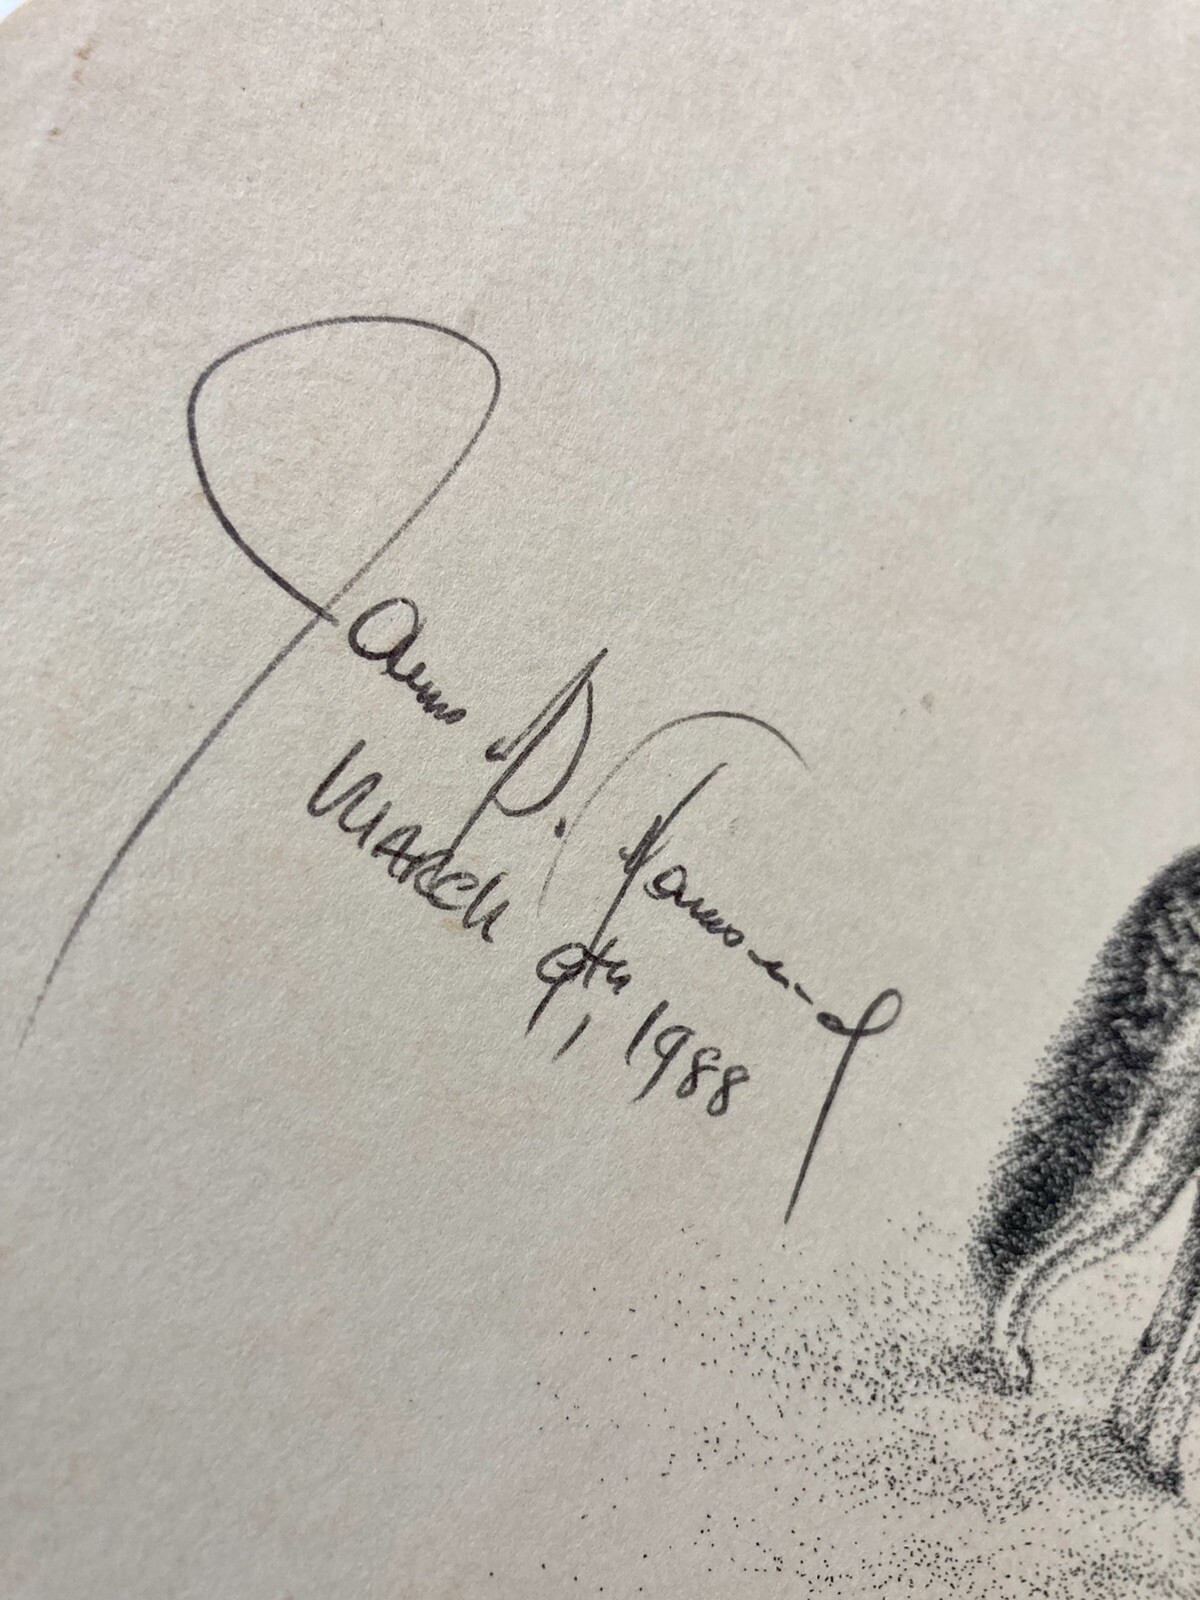 James D.
March 9th, 1988